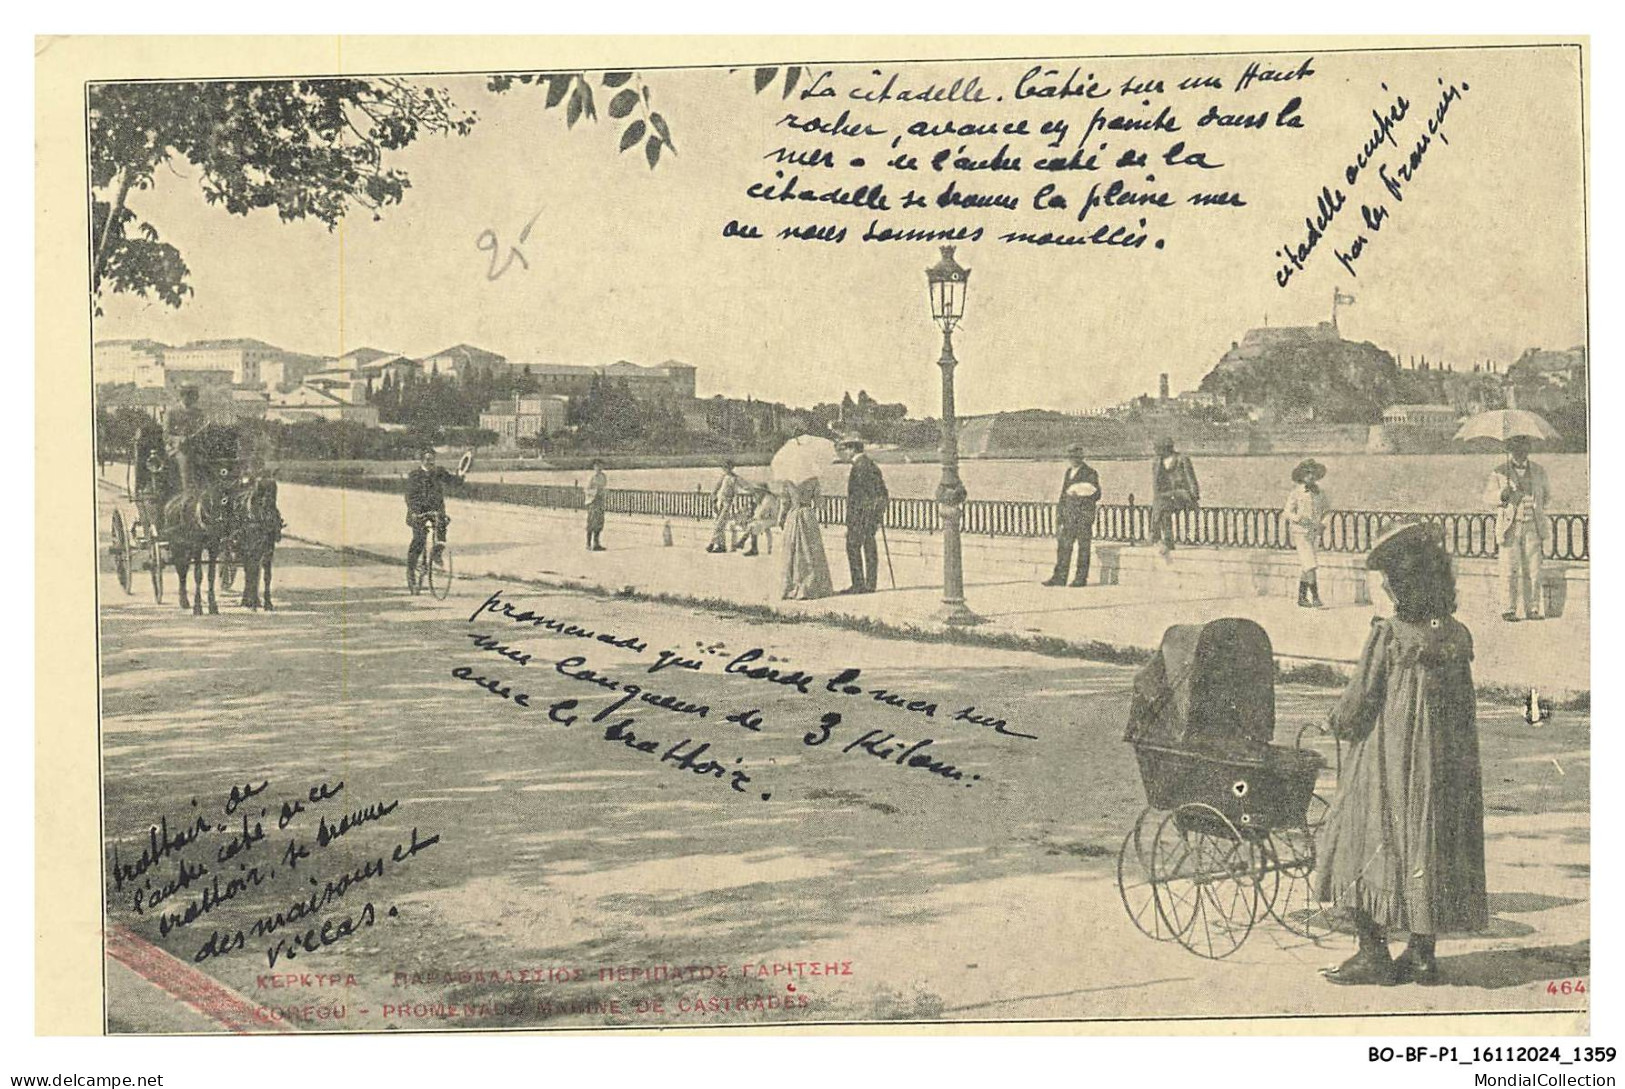 La citadelle. bâtie sur un Haut
rocher, avance en pointe dans la
mer. de l'autre côté de la
citadelle se trouve la pleine mer
ou nous sommes mouillés.
citadelle occupée
par les Français.
25
promenade qui borde la mer sur
une longueur de 3 Kilom:
avec le trottoir.
trottoir, de
l'autre côté de ce
trottoir, se trouve
des maisons et
villas.
ΚΕΡΚΥΡΑ ΠΑΡΑΘΑΛΑΣΣΙΟΣ ΠΕΡΙΠΑΤΟΣ ΓΑΡΙΤΣΗΣ
CORFOU - PROMENADE MARINE DE CASTRADÈS
464
BO-BF-P1_16112024_1359
delcampe.net
MondialCollection